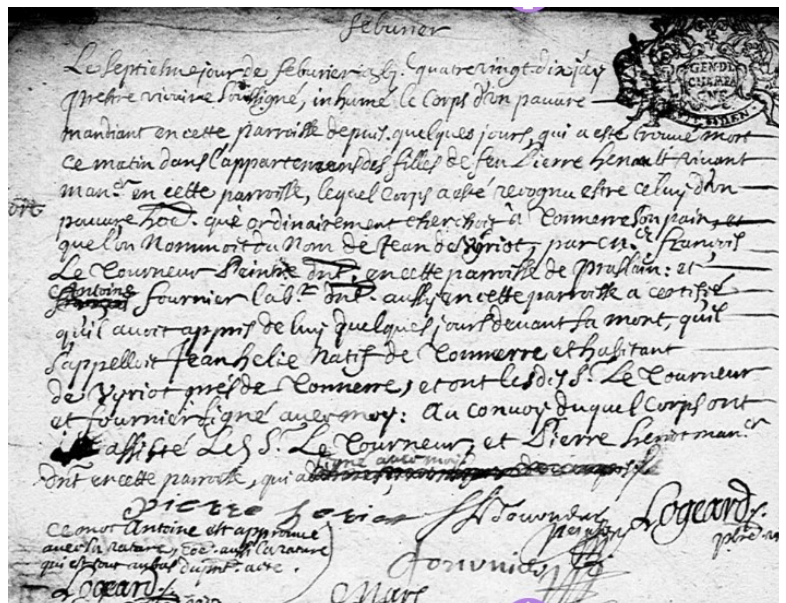 feburier
Le septiesme jour de feburier 1689. quatre vingt dix jay
prestre vicaire soussigné, inhumé le corps d'un pauvre
mandiant en cette parroisse depuis quelques jours, qui a esté trouvé mort
ce matin dans l'appartement des filles de feu Pierre henault vivant
man.er en cette parroisse, lequel corps a esté recognu estre celuy d'un
pauvre qui ordinairement cherchoit à Tonnerre son pain, et
que l'on Nommoit du Nom de Jean de Vyriot, par françois
Le Tourneur Peintre dnt. en cette parroisse de Praslain: et
Antoine fournier lab.r dnt. aussy en cette parroisse a certifié
qu'il avoit appris de luy quelques jours devant sa mort, qu'il
s'appelloit Jean helie Natif de Tonnerre et habitant
de Vyriot pres de Tonnerre, et ont lesdis S.rs Le Tourneur
et fournier signé avec moy: Au convoy duquel corps ont
assisté Les S.r Le Tourneur, et Pierre heriot man.er
dnt en cette parroisse, qui a signé avec moy
Pierre heriot
Logeard
peintre
ce mot Antoine est approuvé
avec sa rature, aussi la rature
qui est tout au bas du pnt. acte.
fournier
Logeard
Mars
GEN.DE
CHAMPA
GNE